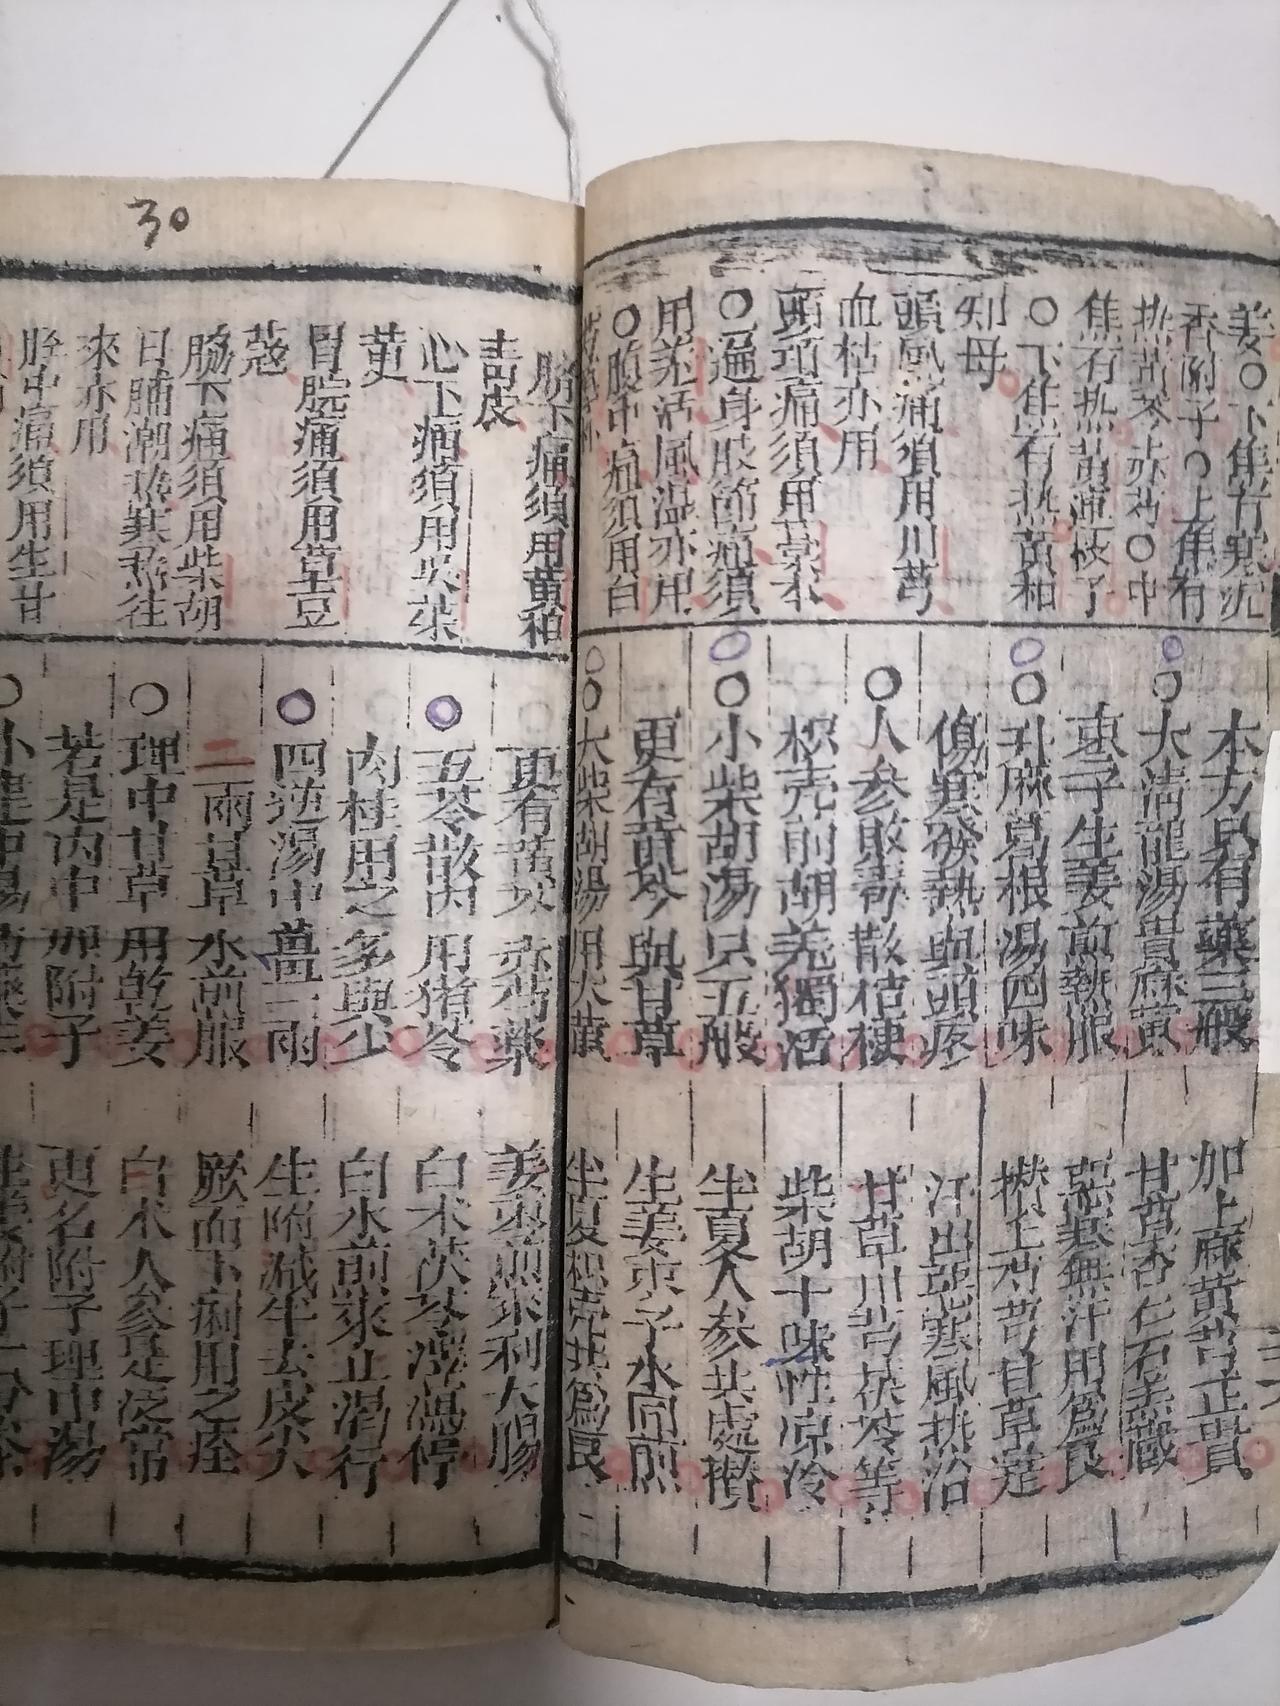 30
姜○下焦有寒沉
香附子○上焦有
热黄芩赤芍○中
焦有热黄連枝子
○下焦有热黄和
知母
頭風痛須用川芎
血枯亦用
頭項痛須用藁本
○遍身肢節痛須
用羌活風湿亦用
○腹中痛須用白
本方只有藥三般
加上麻黄芎正貴
○大清龍湯貴麻黄
甘草杏仁石羔藏
枣子生姜煎熱服
惡寒無汗用為良
○升麻葛根湯四味
攒上芍甘草是
傷寒發熱與頭疼
汗出惡寒風热治
○人参敗毒散桔梗
甘草川芎茯苓等
枳壳前胡羌獨活
柴胡十味性凉冷
○小柴胡湯只五般
半夏人参共處攅
更有黄芩與甘草
生姜枣子水同煎
○大柴胡湯用大黄
半夏枳壳共為良
脇下痛須用黄柏
青皮
心下痛須用吳茱
萸
胃脘痛須用草豆
蔻
脇下痛須用柴胡
日晡潮热寒热往
來亦用
胫中痛須用生甘
更有黄芩赤芍藥
姜枣煎來利大腸
○五苓散内用猪苓
白术茯苓澤瀉停
肉桂用之多與少
白水煎來止渴行
○四逆湯中薑一兩
生附減半去皮尖
二兩甘草水煎服
厥而下痢用之痊
○理中甘草用乾姜
白术人参是泛常
若是内中加附子
更名附子理中湯